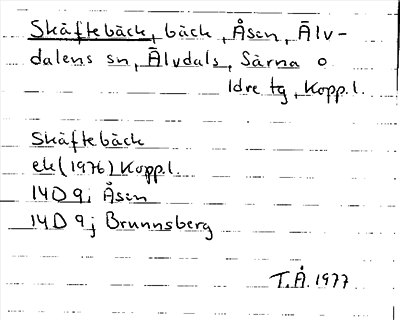 Skäftebäck, bäck, Åsen, Älv-
dalens sn, Älvdals, Särna o
Idre tg, Kopp.l.
Skäftebäck
ek (1976) Kopp.l.
14D 9i Åsen
14D 9j Brunnsberg
T.Å. 1977